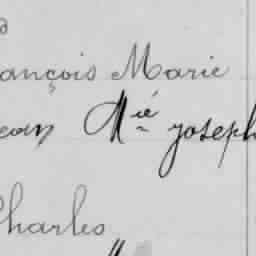 ançois Marie
ean Mié joseph
Charles